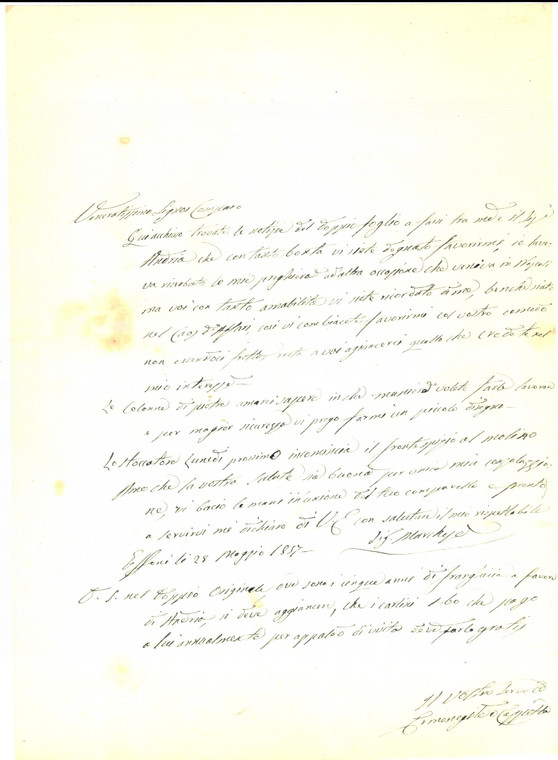 Veneratissimo Signor Compare
Qui acchiuso trovate le notizie del doppio foglio a farsi tra me e il Sig.r
Andria che con tanta bontà vi siete degnato favorirmi, io
va rinovato le mie preghiere ad altra occasione che veniva in Napoli
ma voi con tanta amabilità vi siete ricordato di me, benchè
nel Caos di affari così vi compiacete favorirmi col vostro comodo
non essendoci fretta, resta a voi aggiungerci quello che credete nel
mio interesse
Le Colonne di pietra amarei sapere in che maniera volete farle lavorare
e per maggior sicurezza vi prego farmi un piccolo disegno
Lo Stoccatore Lunedì prossimo incomincia il frontespizio al molino
Amo che la vostra salute sia buona per unica mia consolazio
ne, vi bacio le mani in unione del tuo comparello e pronto
a servirvi mi dichiaro di V.E. con salutar il mio rispettabile
Sig.r Marchese
li 28 Maggio 1857
P. S. nel doppio Originale ove sono i cinque anni di franchigia a favore
di Andria, si deve aggiungere, che i carlini 1.60 che pago
a lui annualmente per appalto di visita deve farlo gratis
Il Vostro
Ermenegildo